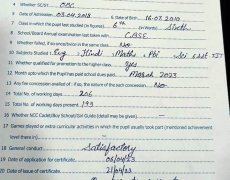 4 Whether SC/ST OBC
5 Date of Admission 03.04.2018 6. Date of Birth 16.07.2010
7 Class in which the pupil last studied (In figure) (in words) Sixth
8 School/Board Annual examination last taken with CBSE
9 Whether failed, if so once/twice in the same class No
10 Subjects Studied : Eng Hindi Maths Phi Sci & Sst
11 Whether qualified for promotion to the higher class Yes
12 Month upto which the Pupil has paid school dues paid March 2023
13 If any fee concession availed of, if so, the nature of the such concession No
14 Total No. of working days 206
15 Total No. of working days present 193
16 Whether NCC Cadet/Boy School/Girl Guide (detail may be given)
17 Games played or extra curricular activities in which the pupil usually took part (mentioned achievement
level there in)
18 General conduct Satisfactory
19 Date of application for certificate 05/04/23
20 Date of issue of certificate 21/04/23